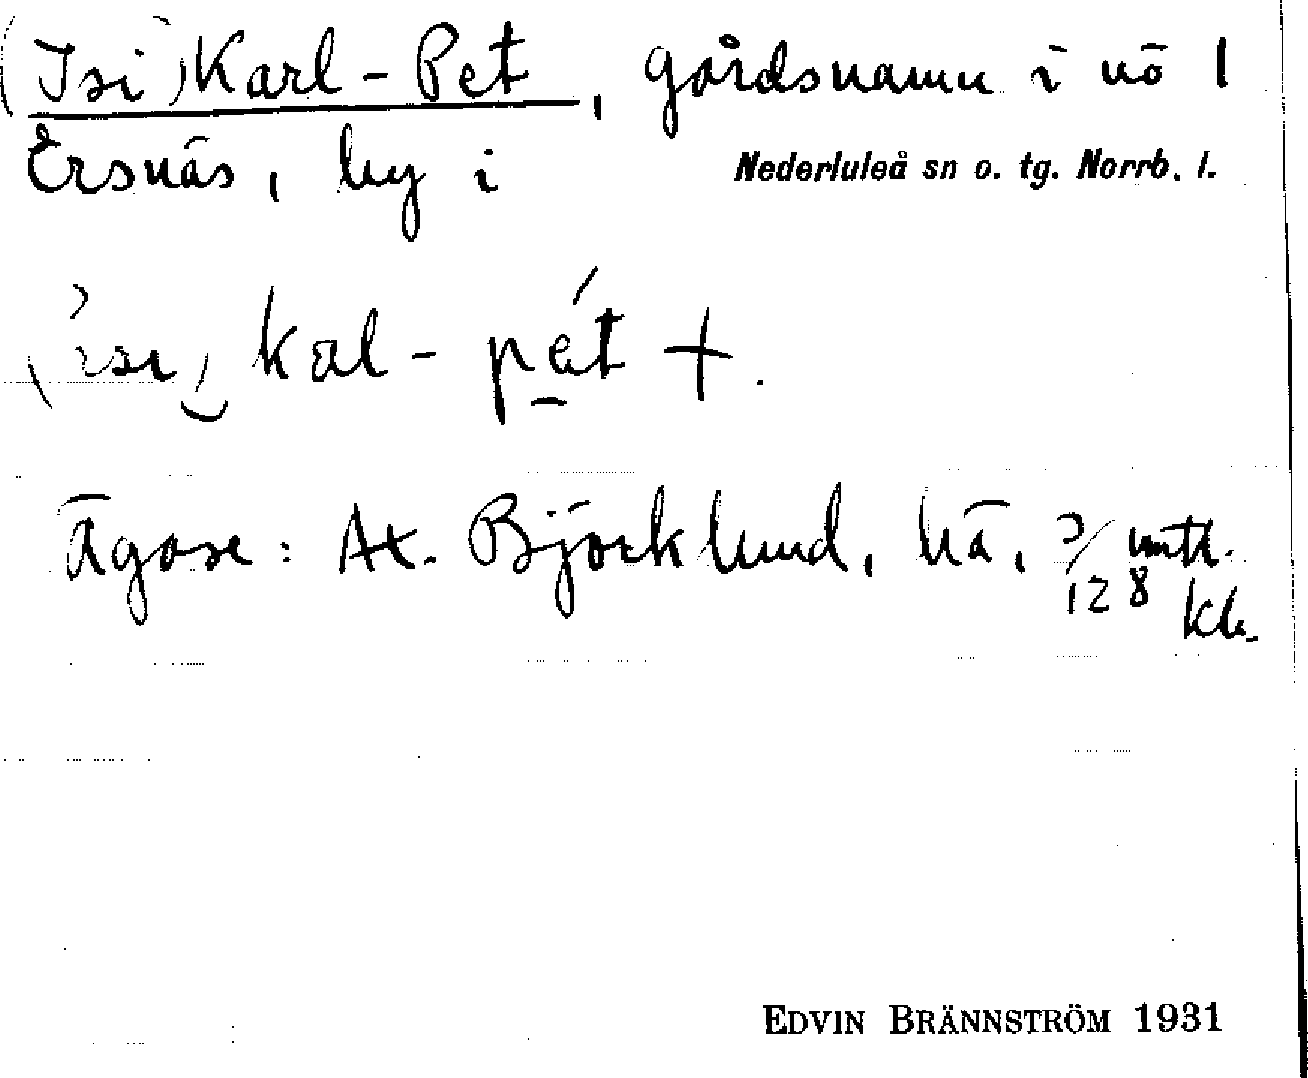 (Isi) Karl-Pet, gårdsnamn i nö 1
Ersnäs, by i Nederluleå sn o. tg. Norrb. l.
(ìsi) kal-pét +.
Ägare: Ax. Björklund, hä, 3/128 mtl.
kr.
EDVIN BRÄNNSTRÖM 1931